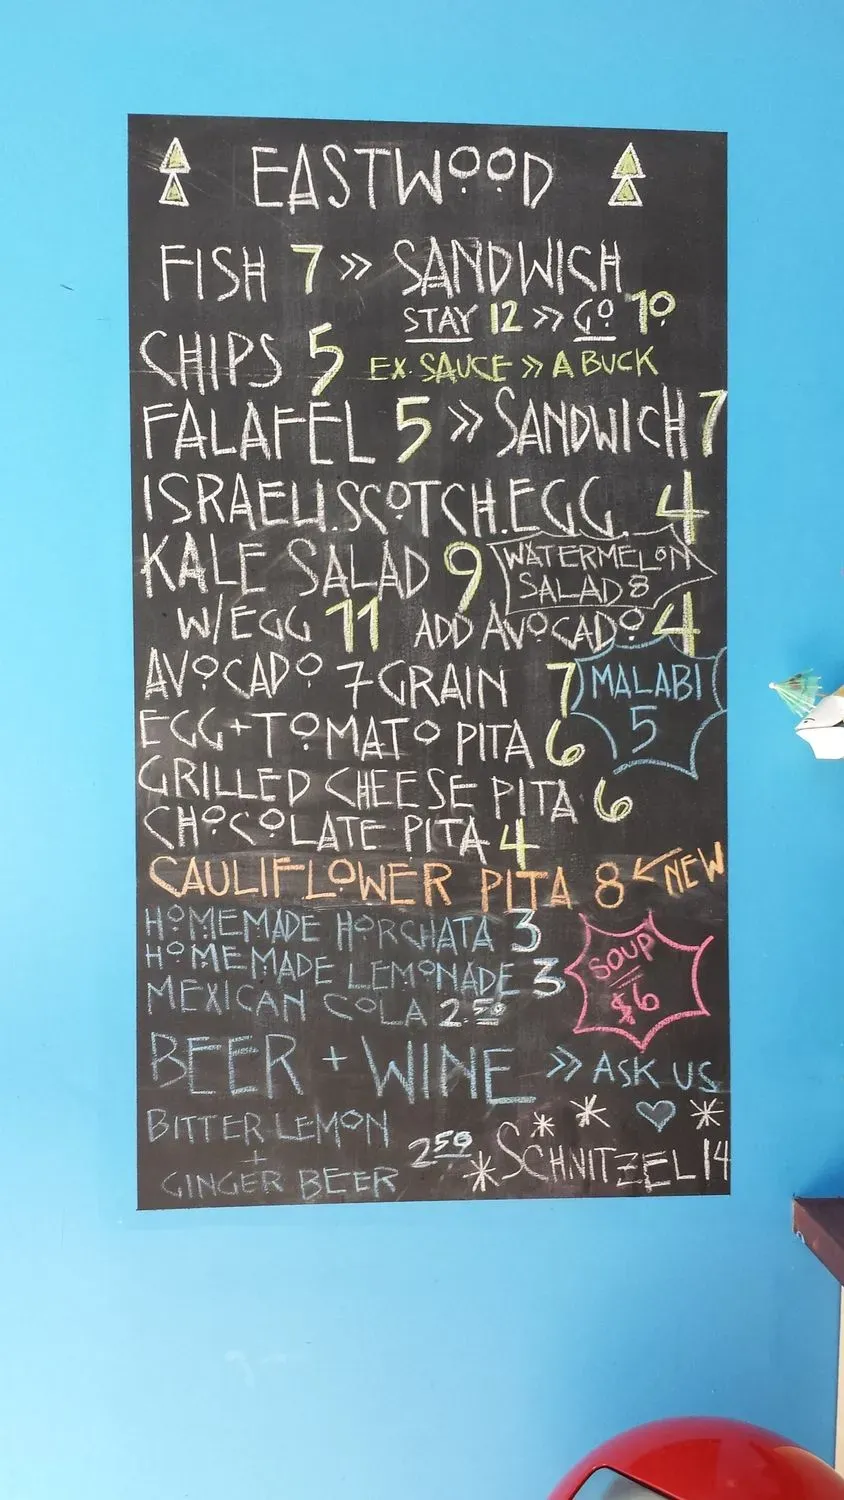 EASTWOOD
FISH 7 >> SANDWICH
STAY 12 >> GO 10
CHIPS 5 EX. SAUCE >> A BUCK
FALAFEL 5 >> SANDWICH 7
ISRAELI.SCOTCH.EGG. 4
KALE SALAD 9 WATERMELON
SALAD 8
W/EGG 11 ADD AVOCADO 4
AVOCADO 7 GRAIN 7 MALABI
5
EGG + TOMATO PITA 6
GRILLED CHEESE PITA 6
CHOCOLATE PITA 4
CAULIFLOWER PITA 8 ← NEW
HOMEMADE HORCHATA 3
HOMEMADE LEMONADE 3 SOUP
$6
MEXICAN COLA 2.50
BEER + WINE >> ASK US
BITTER LEMON
+
GINGER BEER 2 50 * SCHNITZEL 14